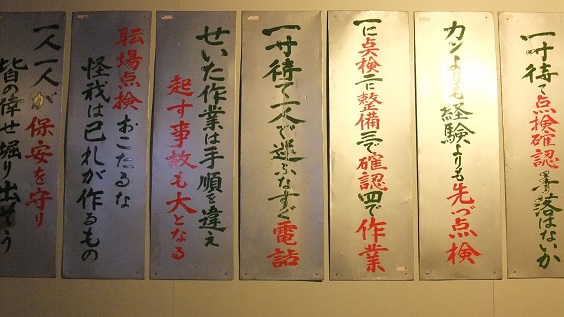 一寸待て点検確認 落はないか
カンよりも経験よりも先づ点検
一に点検二に整備三で確認四で作業
一寸待て一人で迷ふなすぐ電話
せいた作業は手順を違え
起す事故も大となる
耺場点検おこたるな
怪我は己れが作るもの
一人一人が保安を守り
皆の倖せ堀り出そう